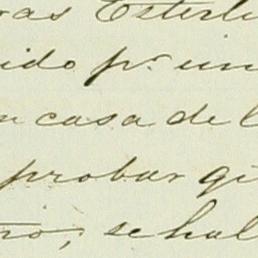 vas Esterli
ido pr. un
n casa de l
probar q
rio, se hal